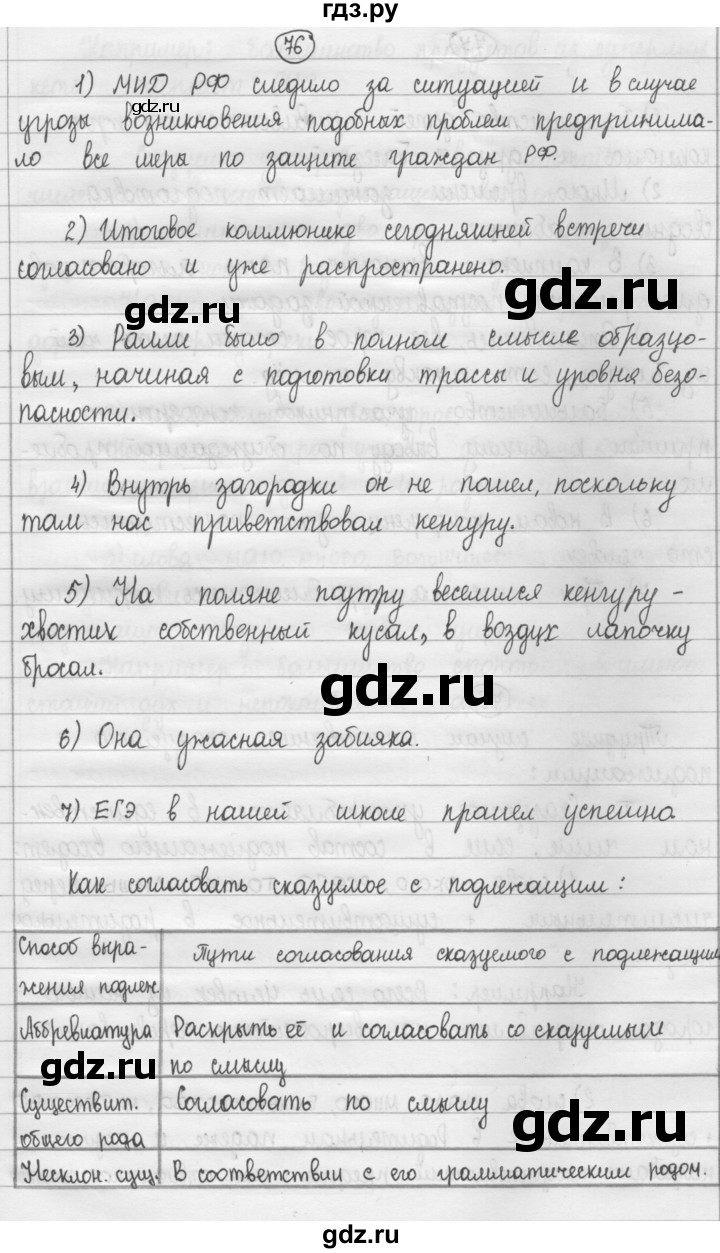 гдз.ру
76
1) МИД РФ следило за ситуацией и в случае
gdz.ru gdz.ru
угрозы возникновения подобных проблем предпринима-
ло все меры по защите граждан РФ.
gdz.ru gdz.ru
2) Итоговое коммюнике сегодняшней встречи
согласовано и уже распространено.
gdz.ru
gdz.ru
3) Ралли было в полном смысле образцо-
вым, начиная с подготовки трассы и уровня безо-
пасности.
gdz.ru
4) Внутрь загородки он не пошел, поскольку
там нас приветствовал кенгуру.
gdz.ru
5) На поляне поутру веселился кенгуру -
хвостик собственный кусал, в воздух лапочку
бросал.
gdz.ru
gdz.ru
6) Она ужасная забияка.
gdz.ru
7) ЕГЭ в нашей школе прошел успешно
gdz.ru
Как согласовать сказуемое с подлежащим:
Способ выра-
жения подлеж. Пути согласования сказуемого с подлежащим
gdz.ru
Аббревиатура Раскрыть её и согласовать со сказуемым
по смыслу
gdz.ru gdz.ru
Существит.
общего рода Согласовать по смыслу
Несклон. сущ. В соответствии с его грамматическим родом.
gdz.ru gdz.ru
gdz.ru